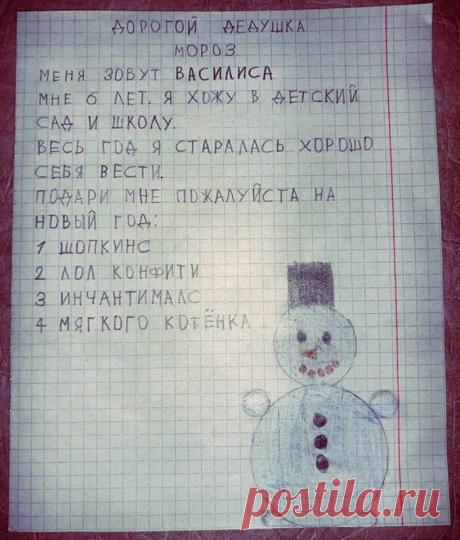 ДОРОГОЙ ДЕДУШКА
МОРОЗ
МЕНЯ ЗОВУТ ВАСИЛИСА
МНЕ 6 ЛЕТ. Я ХОЖУ В ДЕТСКИЙ
САД И ШКОЛУ.
ВЕСЬ ГОД Я СТАРАЛАСЬ ХОРОШО
СЕБЯ ВЕСТИ.
ПОДАРИ МНЕ ПОЖАЛУЙСТА НА
НОВЫЙ ГОД:
1 ШОПКИНС
2 ЛОЛ КОНФИТИ
3 ИНЧАНТИМАЛС
4 МЯГКОГО КОТЁНКА
postila.ru